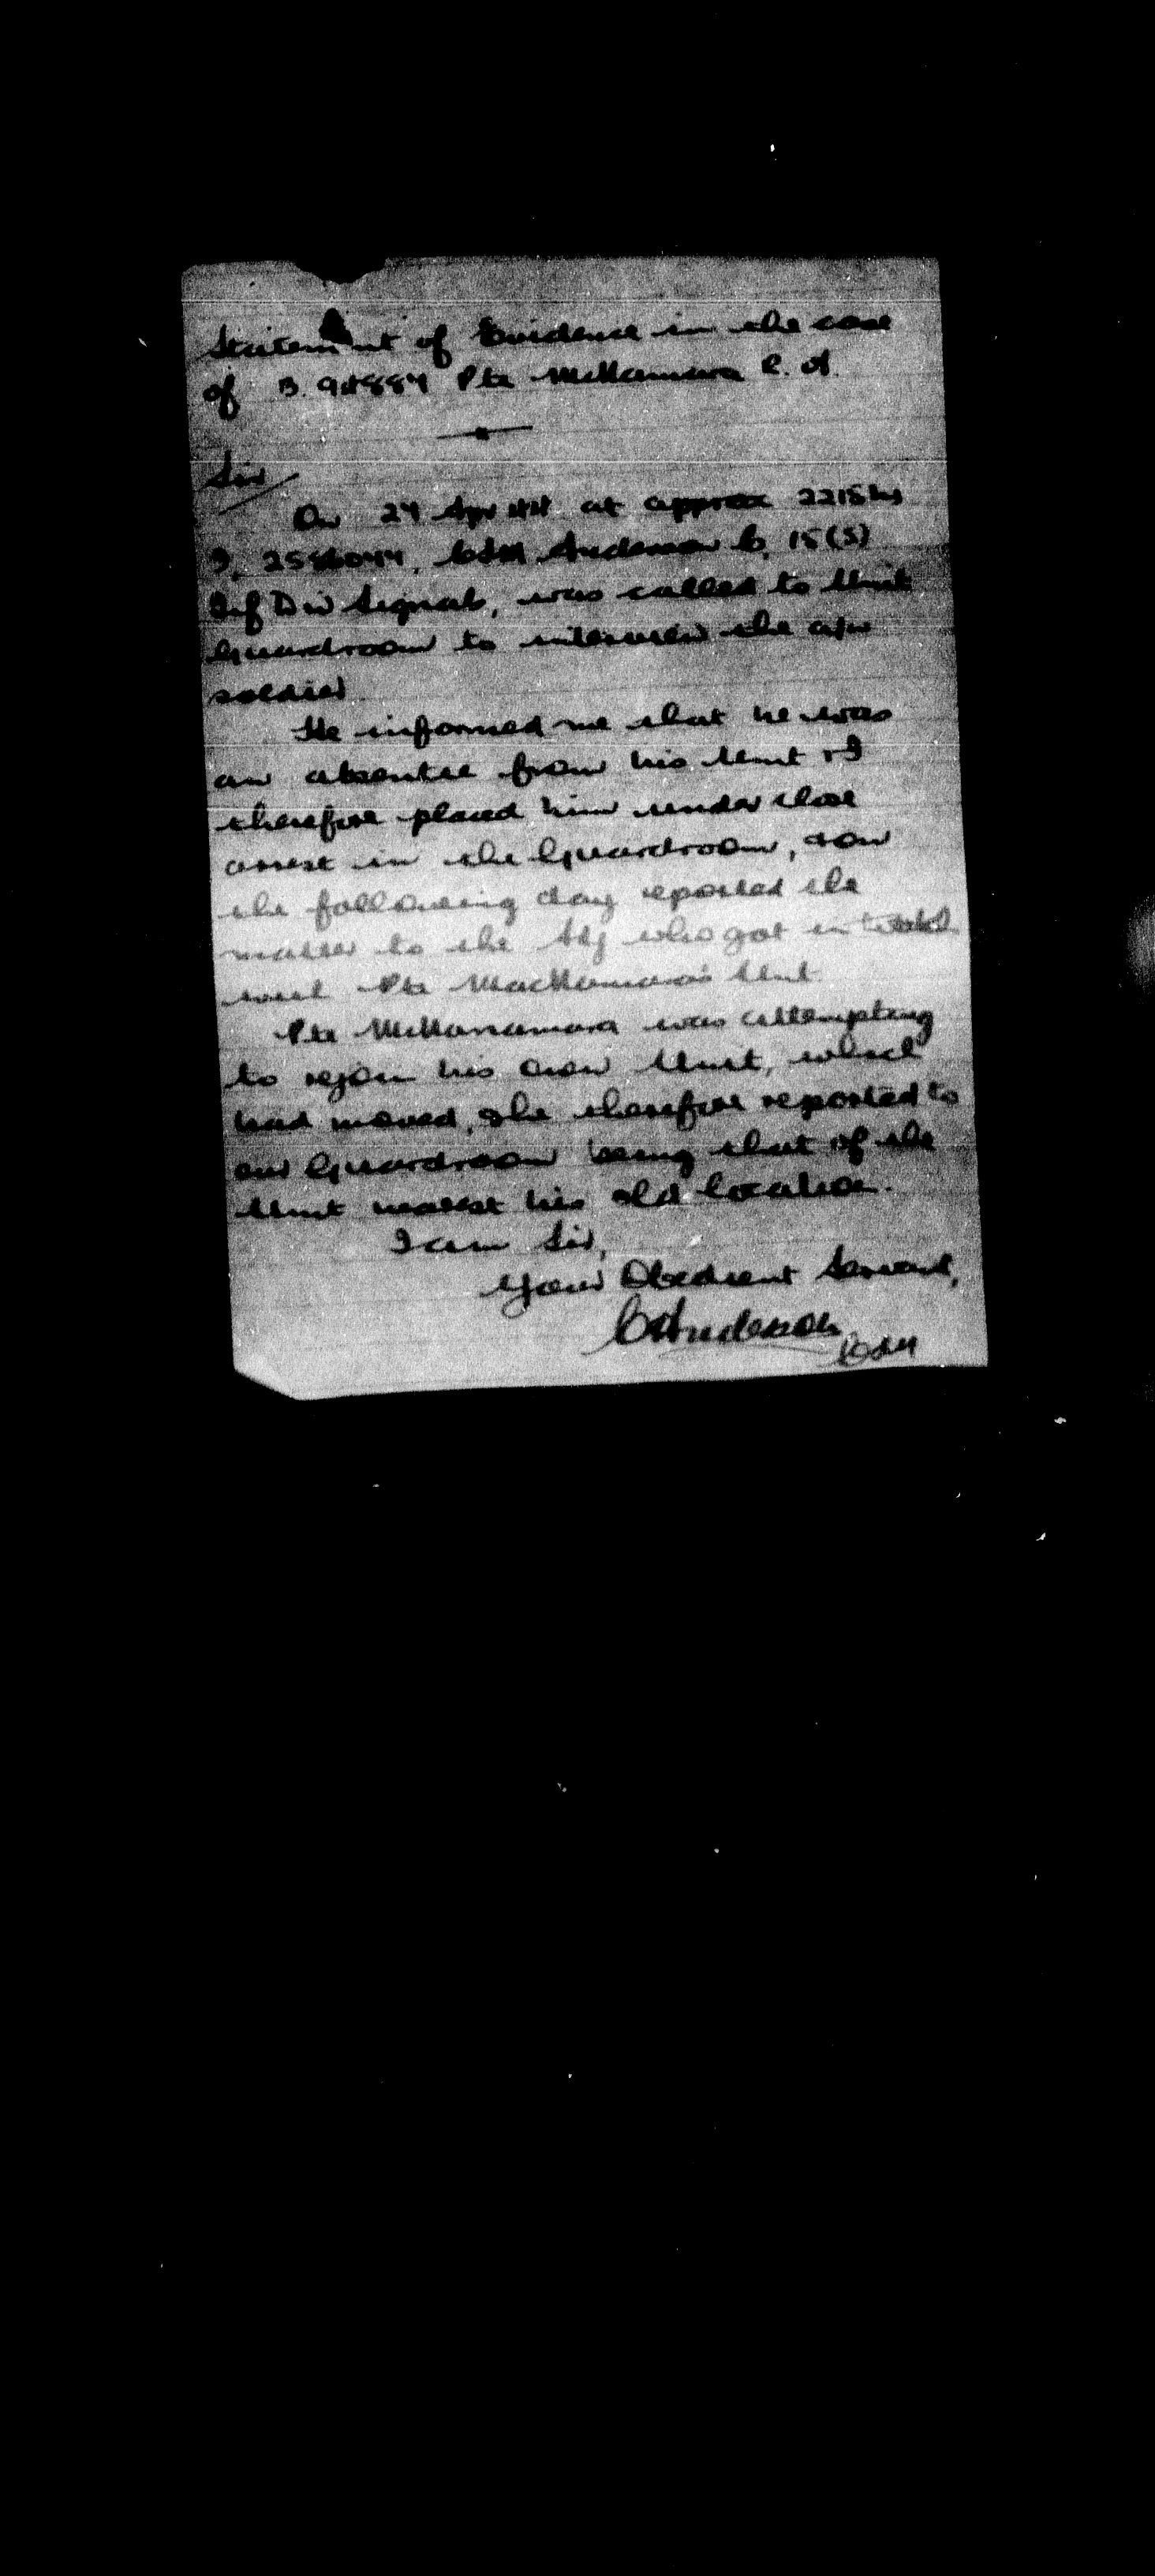 Statement of Evidence in the case
of B. 94884 Pte McNamara C. A.
Sir
On 24 Apr 44 at approx 2215 hrs
I, CSM Anderson C, 15(S)
Inf Div Signals, was called to Unit
Guardroom to interview the a/n
soldier.
He informed me that he was
an absentee from his Unit & I
therefore placed him under close
arrest in the Guardroom, & on
the following day reported the
matter to the Adj who got in touch
with Pte MacNamara's Unit.
Pte McNanamara was attempting
to rejoin his own Unit, which
had moved, & he therefore reported to
our Guardroom being that of the
Unit nearest his old location.
I am Sir,
Your Obedient Servant,
C Anderson
CSM